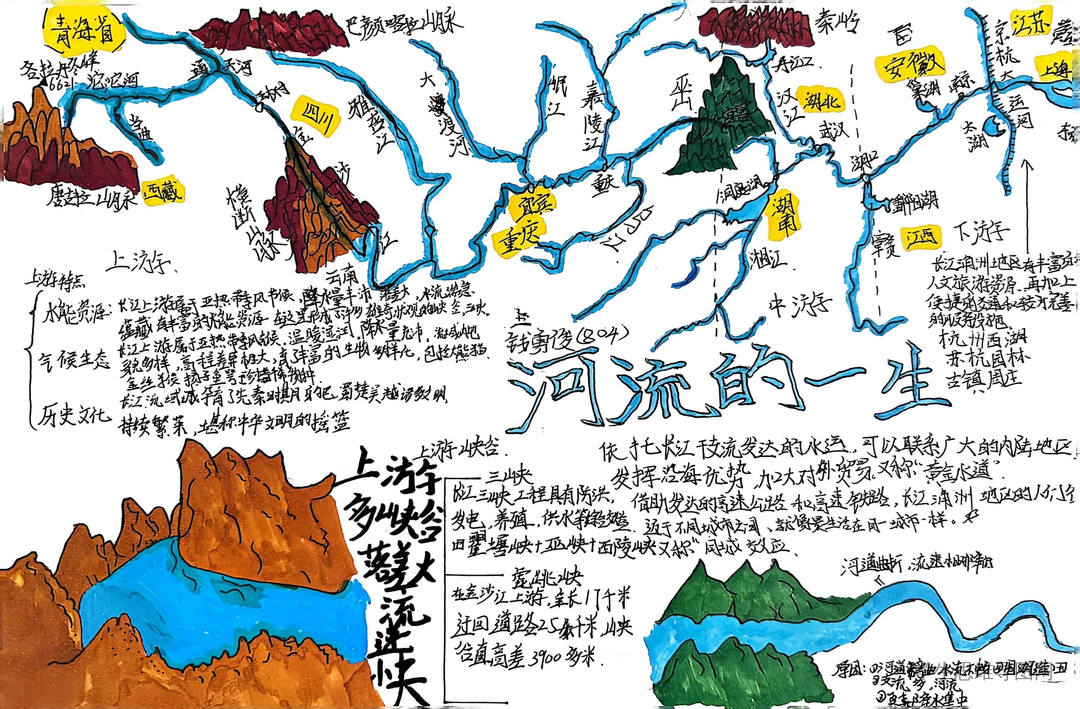 青海省
巴颜喀拉山脉
秦岭
江苏
京杭大运河
安徽
上海
各拉丹冬峰
6621
沱沱河
通天河
当曲
四川
雅砻江
大渡河
岷江
嘉陵江
巫山
丹江口
汉江
湖北
武汉
湖口
芜湖
南京
太湖
唐古拉山脉
西藏
横断山脉
金沙江
宜宾
重庆
重庆
乌江
洞庭湖
湖南
湘江
鄱阳湖
赣
江西
下游
中游
云南
上游
上游特点
水能资源:
长江上游属于亚热带季风气候,降水量丰沛,落差大,水流湍急
蕴藏有丰富的水能资源
气候生态
长江上游属于亚热带季风气候,温暖湿润,降水量充沛
历史文化
长江流域孕育了先秦时期
持续繁荣,堪称中华文明的摇篮
长江三角洲地区有丰富的
人文旅游资源,再加上
便捷的交通和较为完善
的服务设施
杭州西湖
苏杭园林
古镇周庄
钱勇俊(804)
河流的一生
依托长江干支流发达的水运,可以联系广大的内陆地区
发挥沿海优势,加大对外贸易又称“黄金水道”
借助发达的高速公路和高速铁路,长江三角洲地区的人们
近于不同城市之间,就像是生活在同一城市一样。
又称“同城效应”
上游山峡谷
上游多山峡谷落差大流速快
三峡
长江三峡工程具有防洪,
发电,养殖,供水等
由瞿塘峡+巫峡+西陵峡
虎跳峡
在金沙江上游,全长17千米
迂回道路25千米,山峡
垂直高差3900多米.
河道曲折,流速相对平缓
原因: